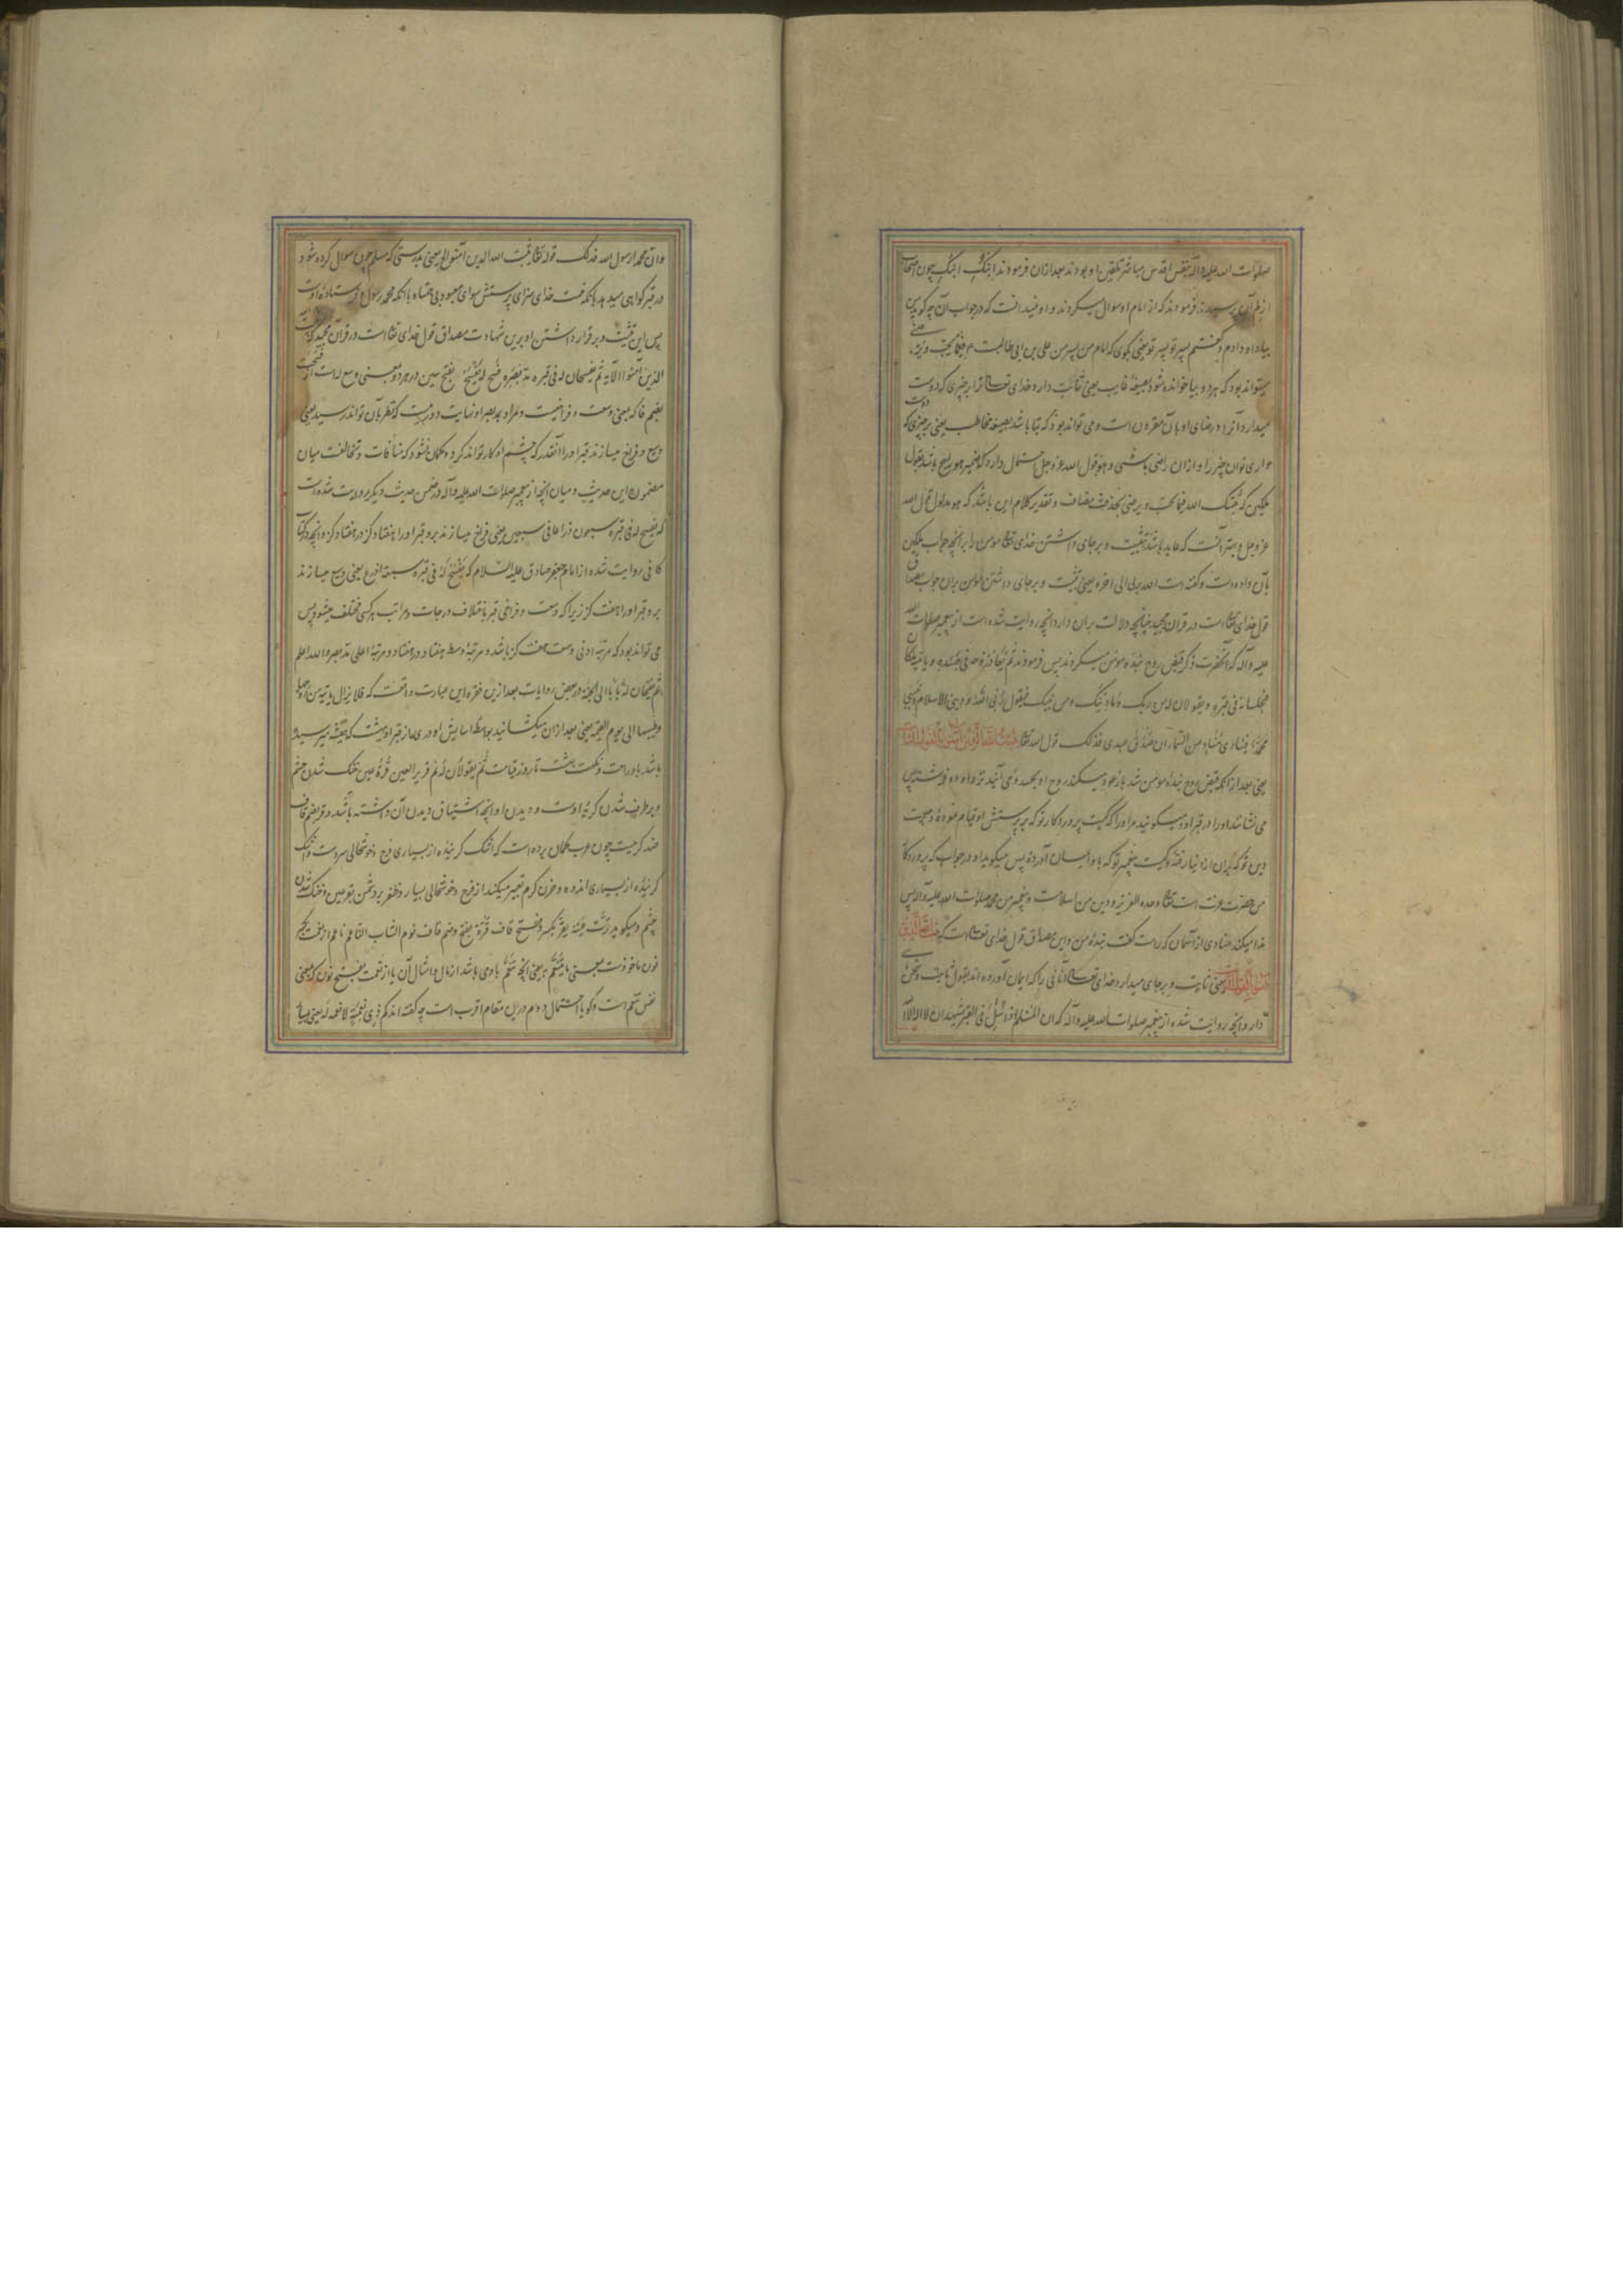 صلوات الله علیه و آله بنفس اقدس مباشر تلقین او بودند بعد ازان فرمودند ابنک ابنک چون اصحاب
از طرآن پرسیدند فرمودند که از امام او سوال میکردند و او نمیدانست که در جواب آن چه گوید پس
بیاد او دادم و گفتم پسر تو پسر تو یعنی بگوی که امام من پسر من علی بن ابی طالبست م فیما یحب و یرضی
میتواند بود که هر دو بیا خوانده شود بصیغهٔ غایب یعنی ثابت دارد خدای تعالی ترا بر چیزی که دوست
میدارد آنرا و رضای او بآن مقرون است و می تواند بود که بتا باشد بصیغه مخاطب یعنی بر چیزی که دوست
داری تو آن چیز را و ازان راضی باشی و هو قول الله عز و جل احتمال دارد که ضمیر هو راجع باشد بقول
ملکین که ثبتک الله فیما تحب و یرضی بحذف مضاف و تقدیر کلام این باشد که هو مدلول قول الله
عز و جل و بهتر آنست که عاید باشد بتثبیت و بر جای داشتن خدای تعالی مومن را بر آنچه جواب ملکین
بآن داده است و گفته است الله ربی الی اخره یعنی تثبیت و بر جای داشتن مومن بران جواب مصداق
قول خدای تعالی است در قران مجید چنانچه دلالت بران دارد انچه روایت شده است از پیغمبر صلوات الله
علیه و آله که آنحضرت ذکر قبض روح بنده مومن میکردند پس فرمودند ثم یعاد روحه فی جسده و یاتیه ملکان
فیجلسانه فی قبره و یقولان له من ربک و ما دینک و من نبیک فیقول ربی الله و دینی الاسلام و نبیی
محمد فینادی مناد من السماء ان صدق عبدی فذلک قول الله تعالی یثبت الله الذین آمنوا بالقول الثابت
یعنی بعد ازانکه قبض روح بندهٔ مومن شد باز عود میکند روح او بجسد و می آیند نزد او دو فرشته پس
می نشانند او را در قبر او و میگویند مر او را که کیست پروردگار تو که بپرستش او قیام نمودهٔ و چیست
دین تو که بران از دنیا رفتهٔ و کیست پیغمبر تو که باو ایمان آوردهٔ پس میگوید او در جواب که پروردگار
من حضرت عزت است تعالی وحده العزیز و دین من اسلامست و پیغمبر من محمد صلوات الله علیه و آله پس
ندا میکند منادی از آسمان که راست گفت بندهٔ من و این مصداق قول خدای تعالی است که یثبت الله الذین
آمنوا بالقول الثابت یعنی ثابت و بر جای میدارد خدای تعالی آنانی را که ایمان آورده اند بقول ثابت و نحن
دار و انچه روایت شده از پیغمبر صلوات الله علیه و آله که ان المسلم اذا سئل فی القبر شهد ان لا اله الا الله
و ان محمدا رسول الله فذلک قوله تعالی یثبت الله الذین آمنوا الخ یعنی بدرستی که مسلم چون سوال کرده شود
در قبر گواهی میدهد بانکه نیست خدای سزای پرستش سوای معبود بی همتا و بانکه محمد رسول و فرستادهٔ اوست
پس این تثبیت و بر قرار داشتن او برین شهادت مصداق قول خدای تعالی است در قرآن مجید که یثبت الله
الذین آمنوا الآیه ثم یفسحان له فی قبره مد بصره فسح له یفسح بفتح سین در هر دو بمعنی وسع له است از فسحت
بضم فا که بمعنی وسعت و فراخیست و مراد بمد بصر او نهایت دوریست که نظر بآن تواند رسید یعنی
وسیع و فراخ میسازند قبر او را آنقدر که چشم او کار تواند کرد و گمان نشود که منافات و تخالفت میان
مضمون این حدیث و میان انچه از پیغمبر صلوات الله علیه و آله در ضمن حدیث دیگر روایت شده است
که یفسح له فی قبره سبعون ذراعا فی سبعین یعنی فراخ میسازند برو قبر او را هفتاد گز در هفتاد گز و انچه در کتاب
کافی روایت شده از امام جعفر صادق علیه السلام که یفسح له فی قبره سبعة اذرع یعنی وسیع میسازند
برو قبر او را هفت گز زیرا که وسعت و فراخی قبر باختلاف درجات و مراتب هر کسی مختلف میشود پس
می تواند بود که مرتبه ادنی وسعت هفت گز باشد و مرتبهٔ وسط هفتاد در هفتاد و مرتبهٔ اعلی مد بصر و الله اعلم
ثم یفتحان له بابا الی الجنة در بعض روایات بعد ازین فقره این عبارت واقعست که فلا یزال یاتیه من روحها
و طیبها الی یوم القیمه یعنی بعد ازان میکشایند بواسطهٔ اسایش او دری از قبر او ببهشت که همیشه میرسیده
باشد باو راحت و نکهت بهشت تا روز قیامت ثم یقولان له نم قریر العین قرة عین خنک شدن چشم
و بر طرف شدن گریهٔ اوست و دیدن او انچه اشتیاق دیدن آن داشته باشد و قر بضم قاف
ضد گرمیست چون عرب گمان برده است که اشک گرینده از بسیاری فرح و خوشحالی سردست و اشک
گرینده از بسیاری اندوه و حزن گرم تعبیر میکنند از فرح و خوشحالی بسیار و ظفر بر دشمن بقرعین و خنک شدن
چشم و میگوید قرت عینه یقر بکسر و فتح قاف قرة بفتح و ضم قاف نوم الشاب الناعم ناعم از نعمت بکسر
نون ماخوذست بمعنی ما یتنعم به یعنی انچه تنعم باوی باشد از مال و امثال آن یا از نعمت بفتح نون که بمعنی
نفس تنعم است و گویا احتمال دوم درین مقام اقربست چه گفته اند کم ذی نعمة لا نعمة له یعنی بسا